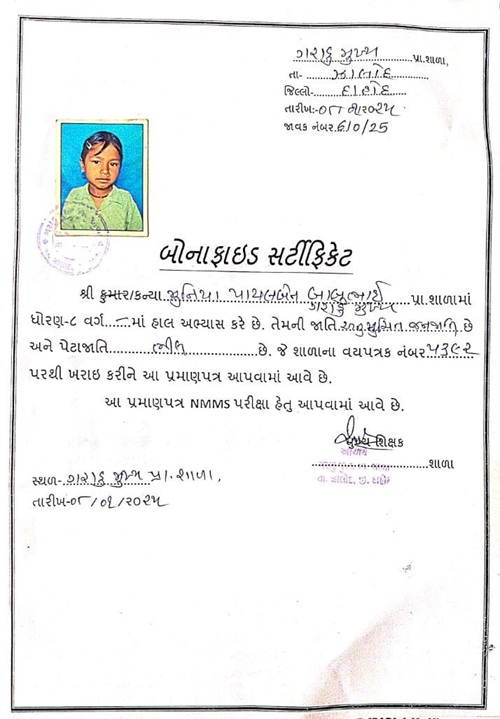 ગરાડુ મુખ્ય પ્રા.શાળા,
તા- ઝાલોદ
જિલ્લો- દાહોદ
તારીખ:-
જાવક નંબર.
બોનાફાઇડ સર્ટીફિકેટ
શ્રી કુમાર/કન્યા મુનિયા પાયલબેન બાબુભાઈ ગરાડુ મુખ્ય પ્રા.શાળામાં
ધોરણ-૮ વર્ગ – માં હાલ અભ્યાસ કરે છે. તેમની જાતિ અનુસુચિત જનજાતિ છે
અને પેટાજાતિ ભીલ છે. જે શાળાના વયપત્રક નંબર ૫૩૯૨
પરથી ખરાઇ કરીને આ પ્રમાણપત્ર આપવામાં આવે છે.
આ પ્રમાણપત્ર NMMS પરીક્ષા હેતુ આપવામાં આવે છે.
મુખ્ય શિક્ષક
શાળા
તા. ઝાલોદ, જી. દાહોદ
સ્થળ- ગરાડુ મુખ્ય પ્રા. શાળા,
તારીખ-